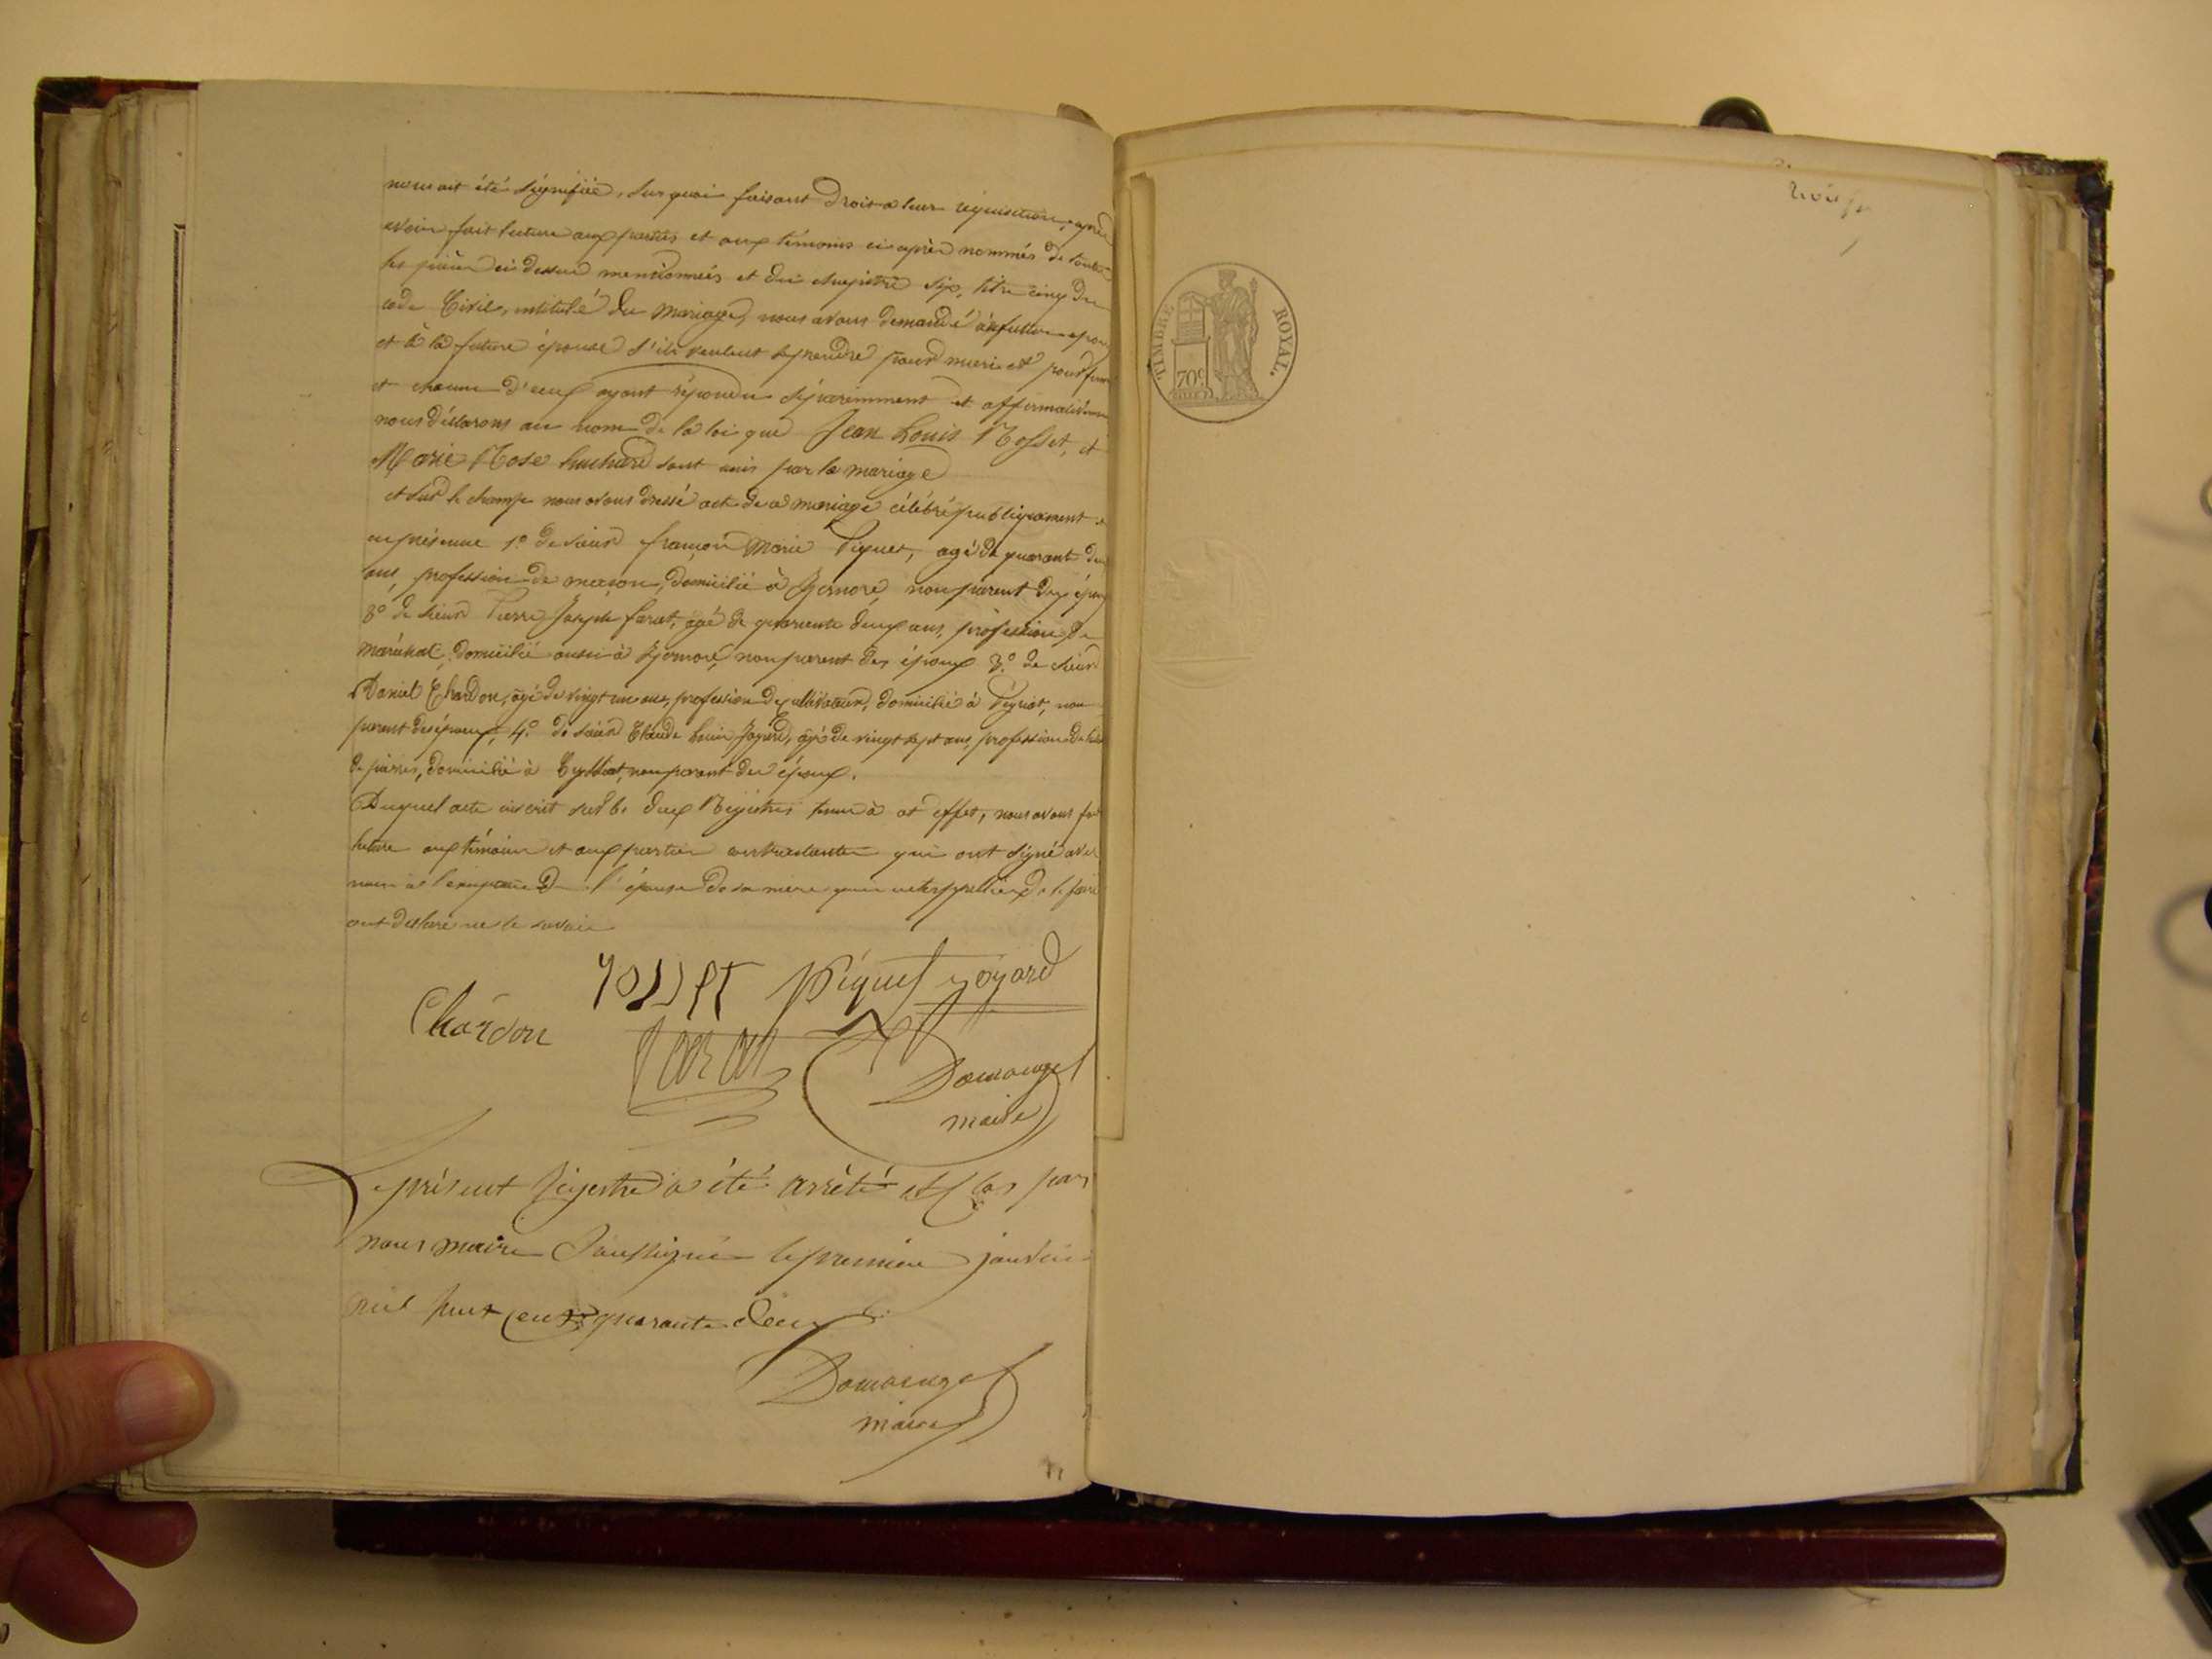 nous ait été signifiée, sur quoi faisant droit à leur réquisition, après
avoir fait lecture aux parties et aux témoins ci après nommés de toutes
les pièces ci dessus mentionnées et du chapitre six, titre cinq du
code Civil, intitulé du Mariage, nous avons demandé au futur époux
et à la future épouse s'ils veulent se prendre pour mari et pour femme
et chacun d'eux ayant répondu séparémment et affirmativement
nous déclarons au nom de la loi que Jean Louis Rosset, et
Marie Rose huchard sont unis par le mariage
et sur le champ nous avons dressé acte de ce mariage célébré publiquement
en présence 1.º de sieur françois Marie Piquet, agé de quarante deux
ans, profession de maçon, domicilié à Izernore, non parent des époux
2º de sieur Pierre Joseph farat, agé de quarante deux ans, profession de
maréchal, domicilié aussi à Izernore, non parent des époux 3.º de sieur
Daniel Chardon, agé de vingt un ans, profession de cultivateur, domicilié à Peyriat, non
parent des époux, 4.º de sieur Claude Louis Joyard, agé de vingt sept ans, profession de
de pierres, domicilié à Ceyssiat, non parent des époux.
Duquel acte inscrit sur les deux Régistres tenu à cet effet, nous avons fait
lecture aux témoins et aux parties contractantes qui ont signé avec
nous à l'exception de l'épouse de sa mère qui interpellées de le faire
ont déclaré ne le savoir
rosset Piquet joyard
Chardon
farat
Domange
maire
Le présent Régistre a été arrêté et clos par
nous maire Soussigné le premier janvier
mil huit cent quarante deux
Domange
maire
TIMBRE ROYAL.
70c